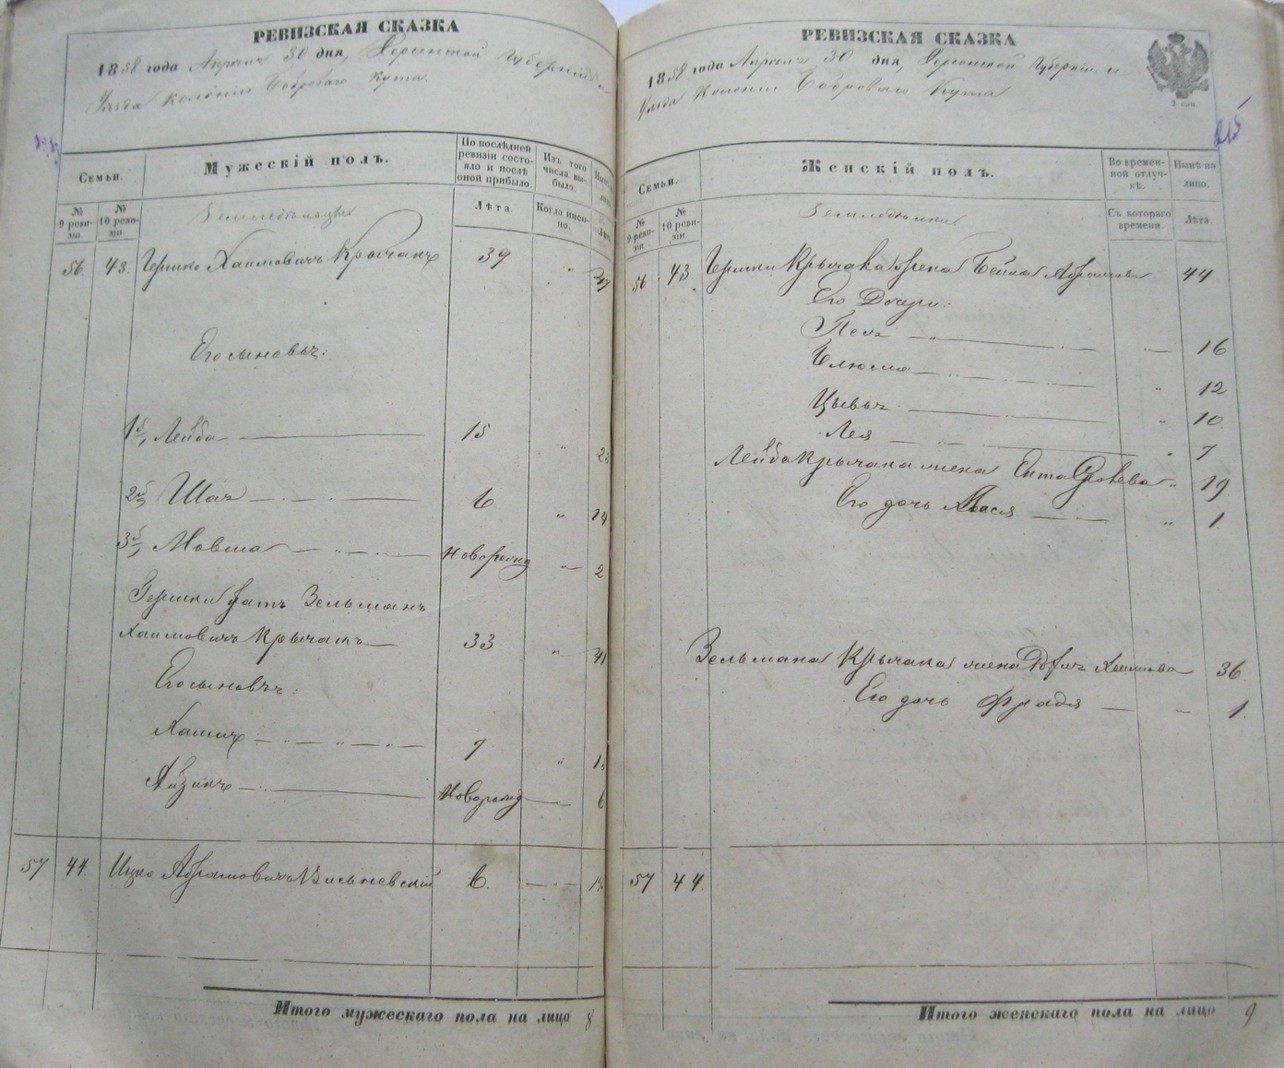 РЕВИЗСКАЯ СКАЗКА
1858 года Апреля 30 дня, Херсонской Губернии
Уезда колонии Боброваго Кута.
Семьи.
Мужескій полъ.
По послѣдней ревизіи состояло и послѣ оной прибыло.
Изъ того числа выбыло.
№ 9 ревизіи
№ 10 ревизіи
Лѣта.
Когда именно.
Земледѣльцы
56 43 Гершко Хаимовичъ Крычакъ 39 "
Его сыновья:
1й, Лейба 15 "
2й, Шая 6 " 14
3й, Мовша новорожд 2
Гершки братъ Зельманъ
Хаимовичъ Крычакъ 33 " 41
Его сыновья:
Хаимъ 7 "
Айзикъ Новорожд 6
57 44 Ицко Абрамовичъ Вишневскій 6
Итого мужескаго пола на лицо 8
РЕВИЗСКАЯ СКАЗКА
1858 года Апреля 30 дня, Херсонской Губернии
Уезда Колонии Боброваго Кута
215
Семьи.
Женскій полъ.
Во временной отлучкѣ.
Нынѣ на лицо.
№ 9 ревизіи
№ 10 ревизіи.
Съ котораго времени.
Лѣта.
Земледѣлки
56 43 Гершки Крычака жена Бейла Абрамова 44
Его Дочери:
16
12
Цывья " 10
Лея " 7
Лейба Крычака жена Ента " 19
Его дочь " 1
Зельмана Крычака жена Хаимова 36
Его дочь Фрадя 1
57 44
Итого женскаго пола на лицо 9